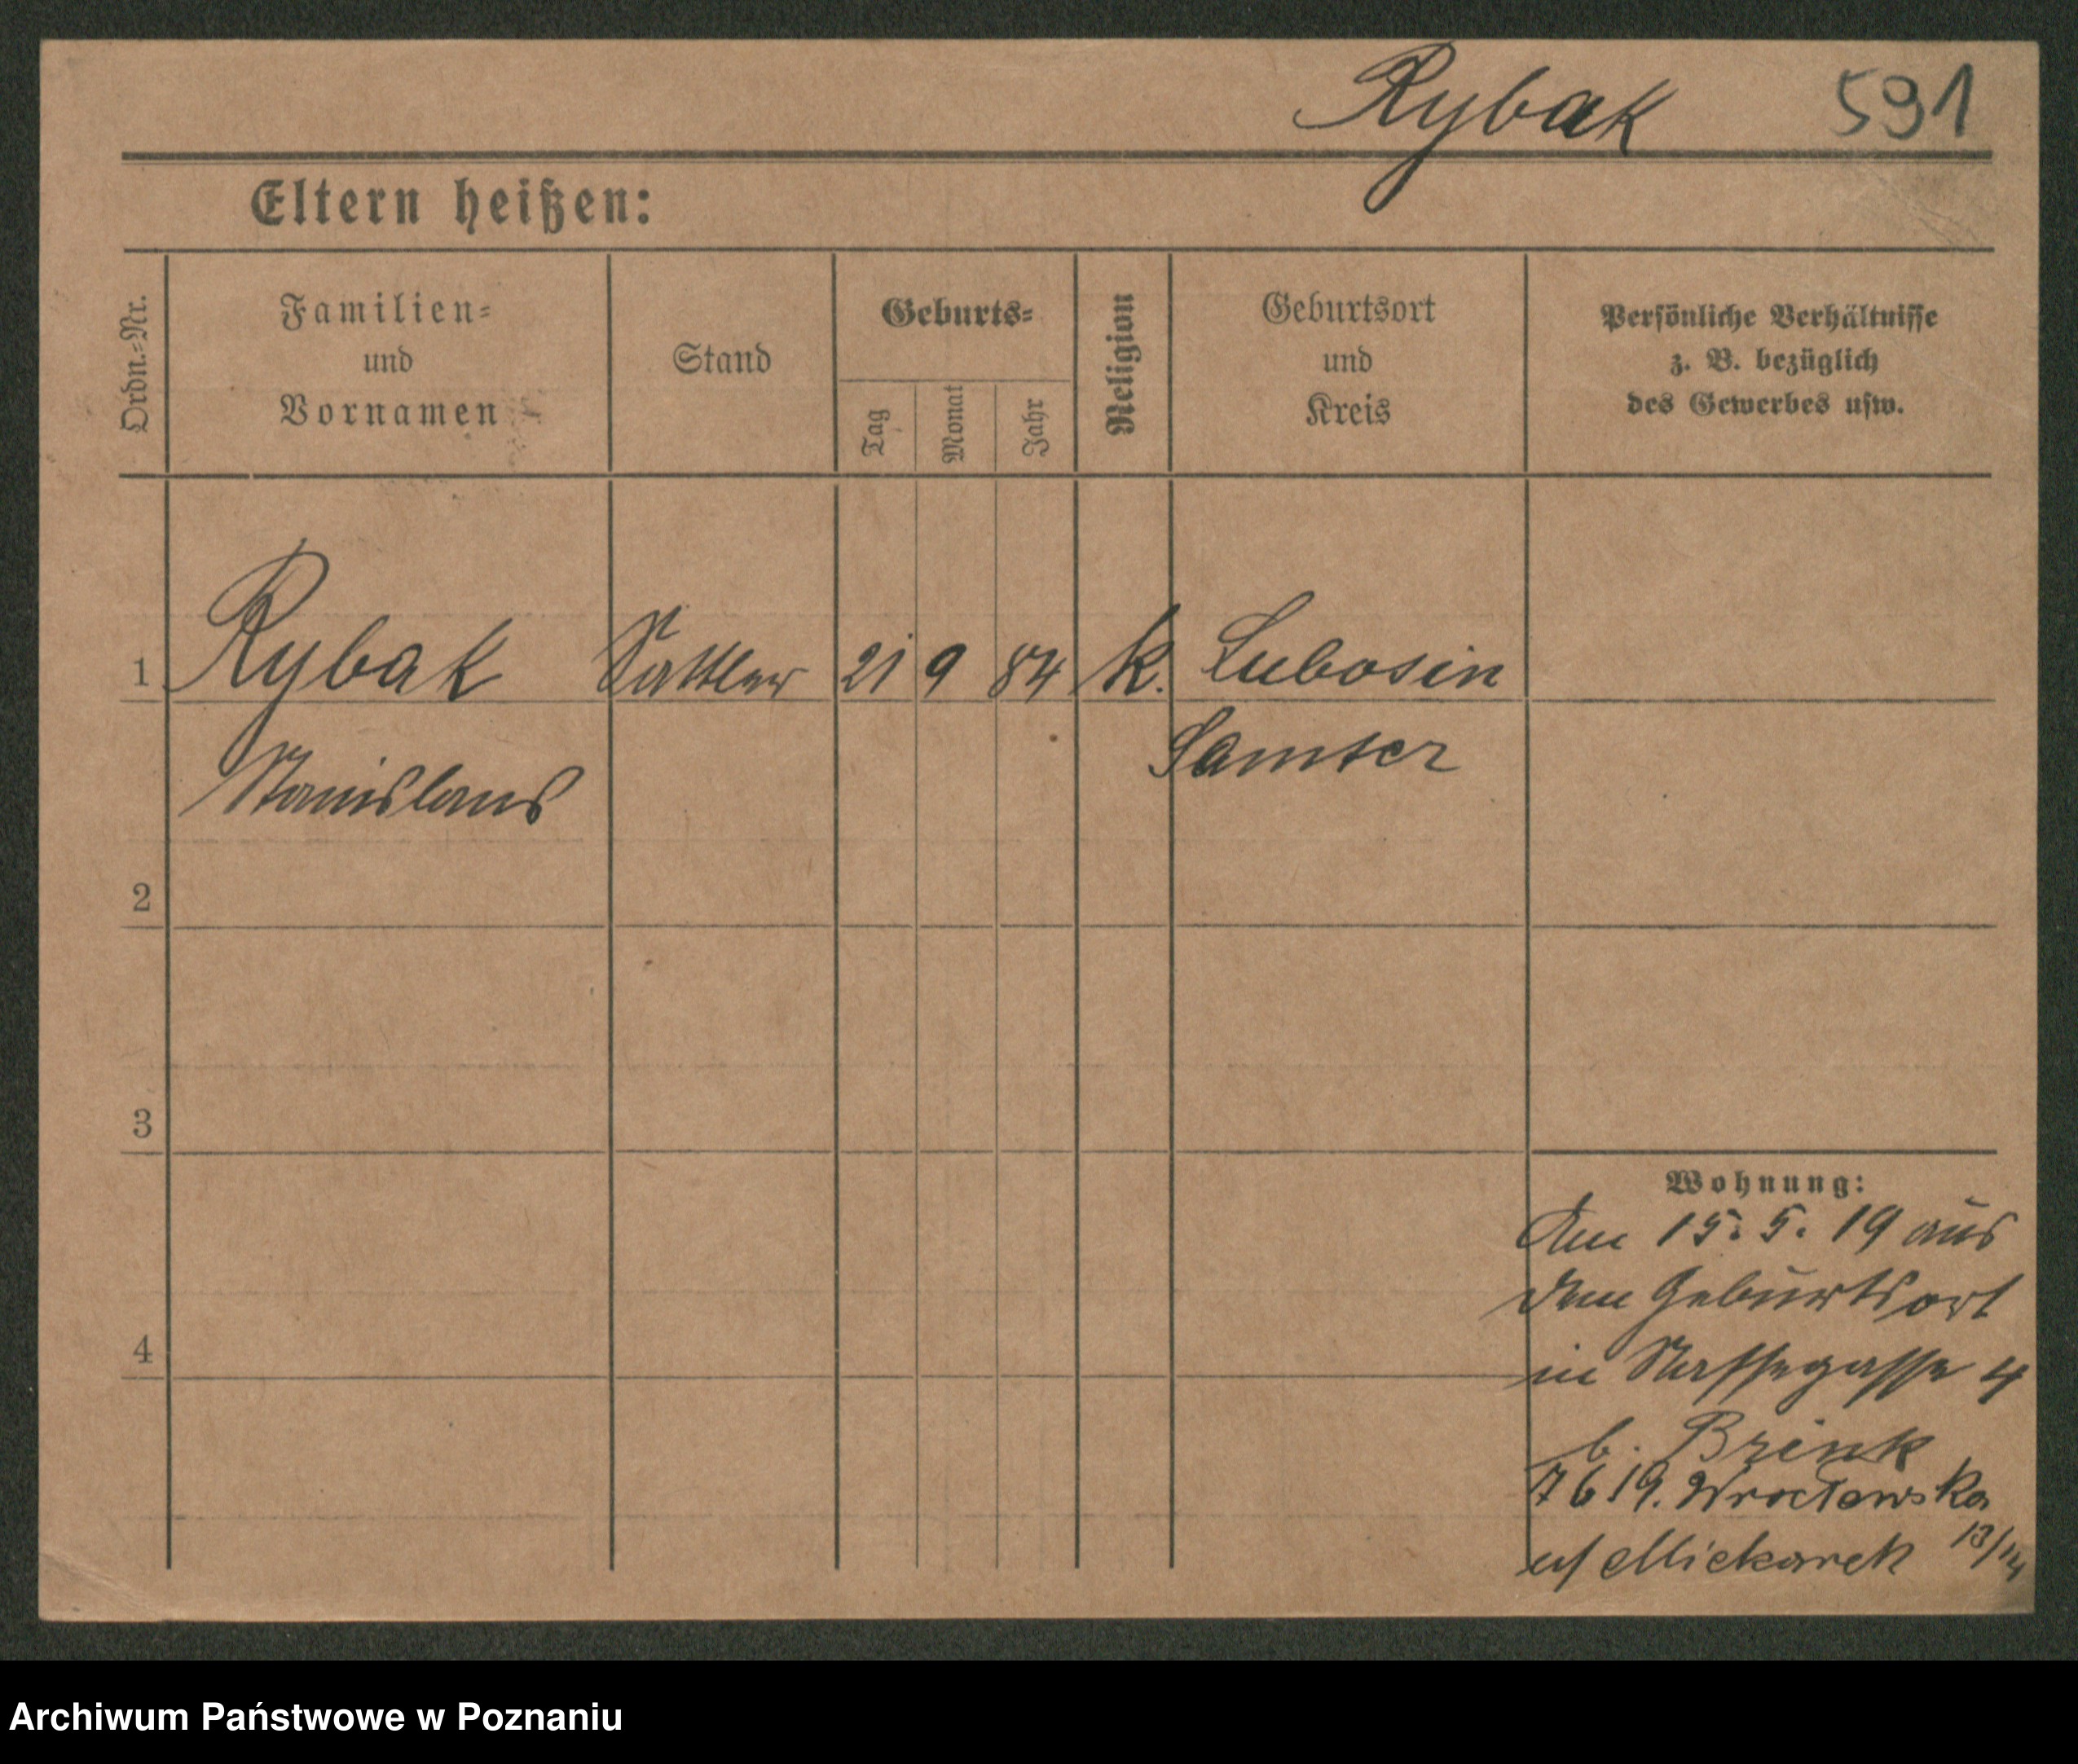 Rybak 591
Eltern heißen:
Ordn.-Nr.
Familien-
und
Vornamen
Stand
Geburts-
Tag
Monat
Jahr
Religion
Geburtsort
und
Kreis
Persönliche Verhältnisse
z. B. bezüglich
des Gewerbes usw.
1 Rybak Sattler 21 9 84 k. Lubosin
Samter
Stanislaus
2
3
Wohnung:
Am 15. 5. 19 aus
dem Geburtsort
4
in 4
b. Brink
7 6 19. Wrocławska
13/14
Archiwum Państwowe w Poznaniu